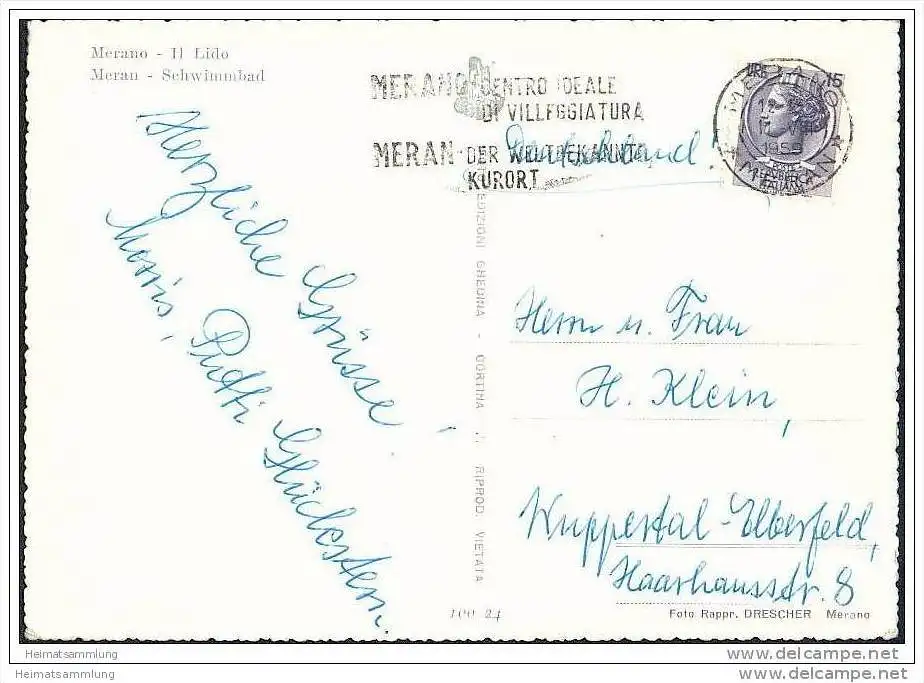 Merano - Il Lido
Meran - Schwimmbad
MERANO CENTRO IDEALE
DI VILLEGGIATURA
MERAN DER WELTBEKANNTE
KURORT
LIRE 15
MERANO
1959
POSTE
REPUBBLICA
ITALIANA
Deutschland
Herzliche Grüsse!
Glücksstern.
EDIZIONI GHEDINA - CORTINA RIPROD. VIETATA
Herrn u. Frau
H. Klein,
Wuppertal-Elberfeld,
Haarhausstr. 8
100 24
Foto Rappr. DRESCHER Merano
Heimatsammlung www.delcampe.net
Heimatsammlung www.delcampe.net